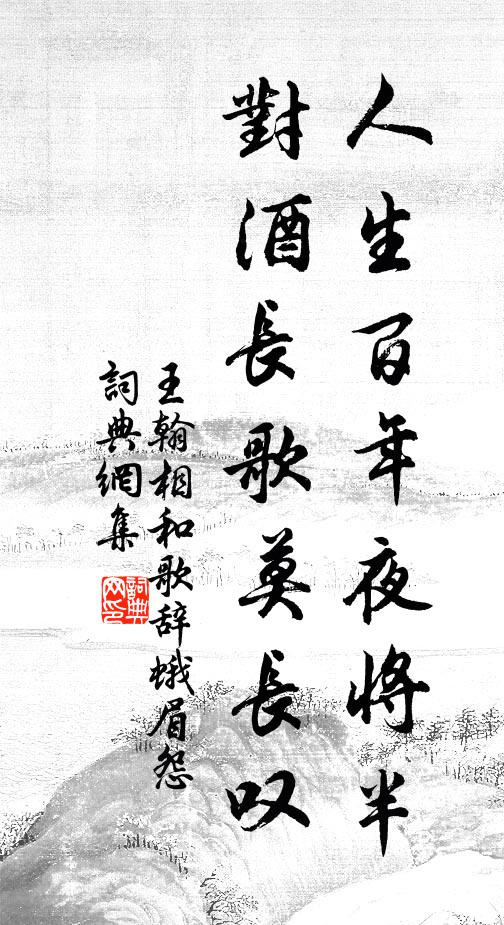 人生百年夜將半
對酒長歌莫長叹
王翰相和歌辞蛾眉怨
詞典網集
詞典网印